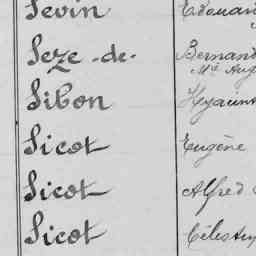 Sevin Edouard
Seze -de- Bernard
Mie Aug
Sibon Hyacint
Sicot Eugène
Sicot Alfred
Sicot Célesti